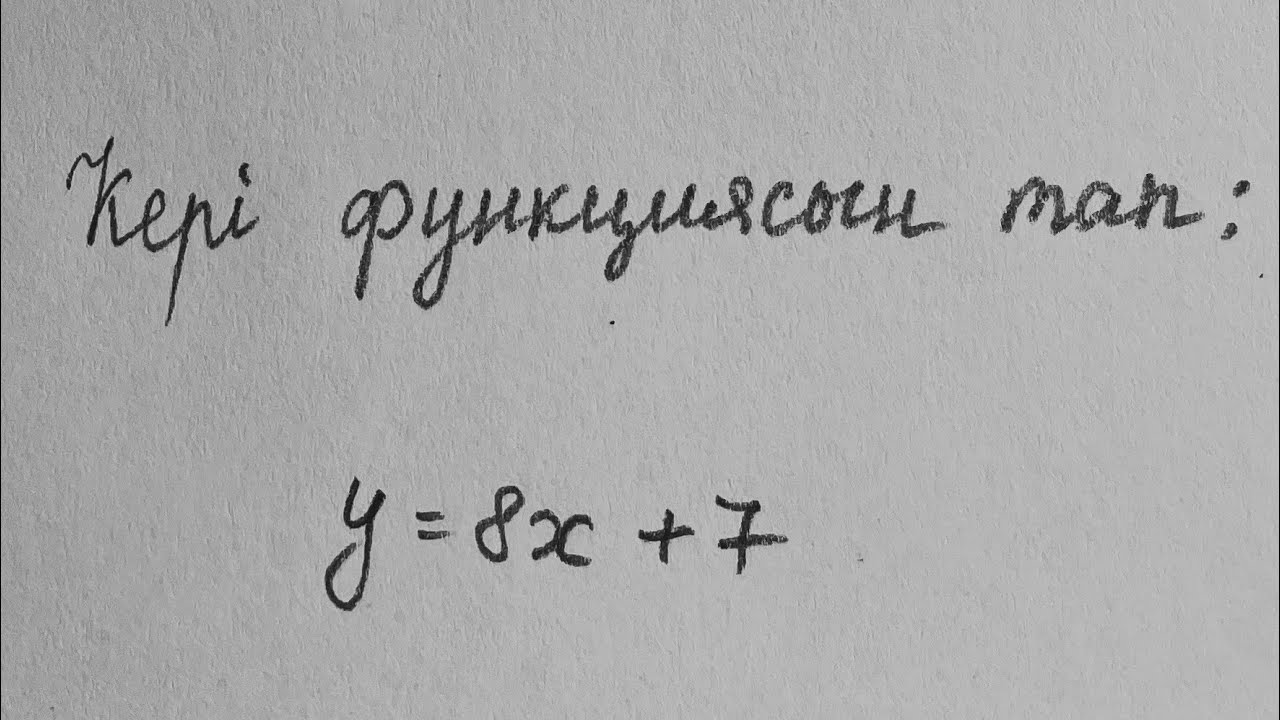 Кері функциясын тап:
y = 8x + 7